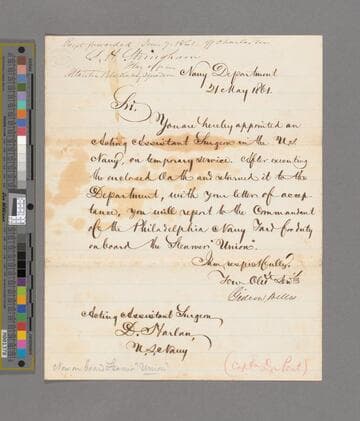 Recd forwarded June 7. 1861. off Charleston
S. H. Stringham
Flag officer
Atlantic Blockading Squadron
Navy Department
21 May 1861.
Sir,
You are hereby appointed an
Acting Assistant Surgeon in the U.S.
Navy, on temporary service. After executing
the enclosed Oath and returned it to the
Department, with your letter of accep-
tance, you will report to the Commandant
of the Philadelphia Navy Yard for duty
on board the Steamer "Union".
I am, respectfully,
Your Obt. Servt.
Gideon Welles
Acting Assistant Surgeon
D. Harlan,
U.S. Navy
Now on board Steamer "Union"
(Capt. Du Pont)